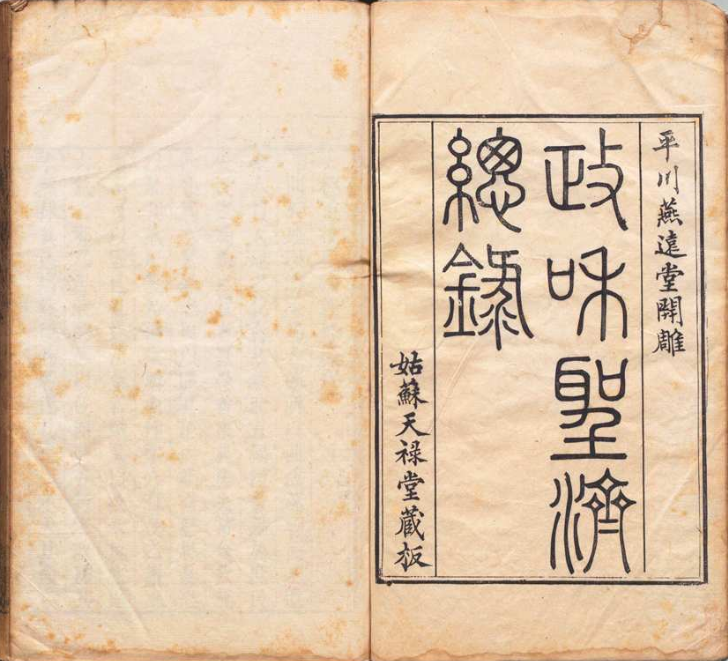 平川燕遠堂開雕
政和聖濟
總錄
姑蘇天禄堂藏板